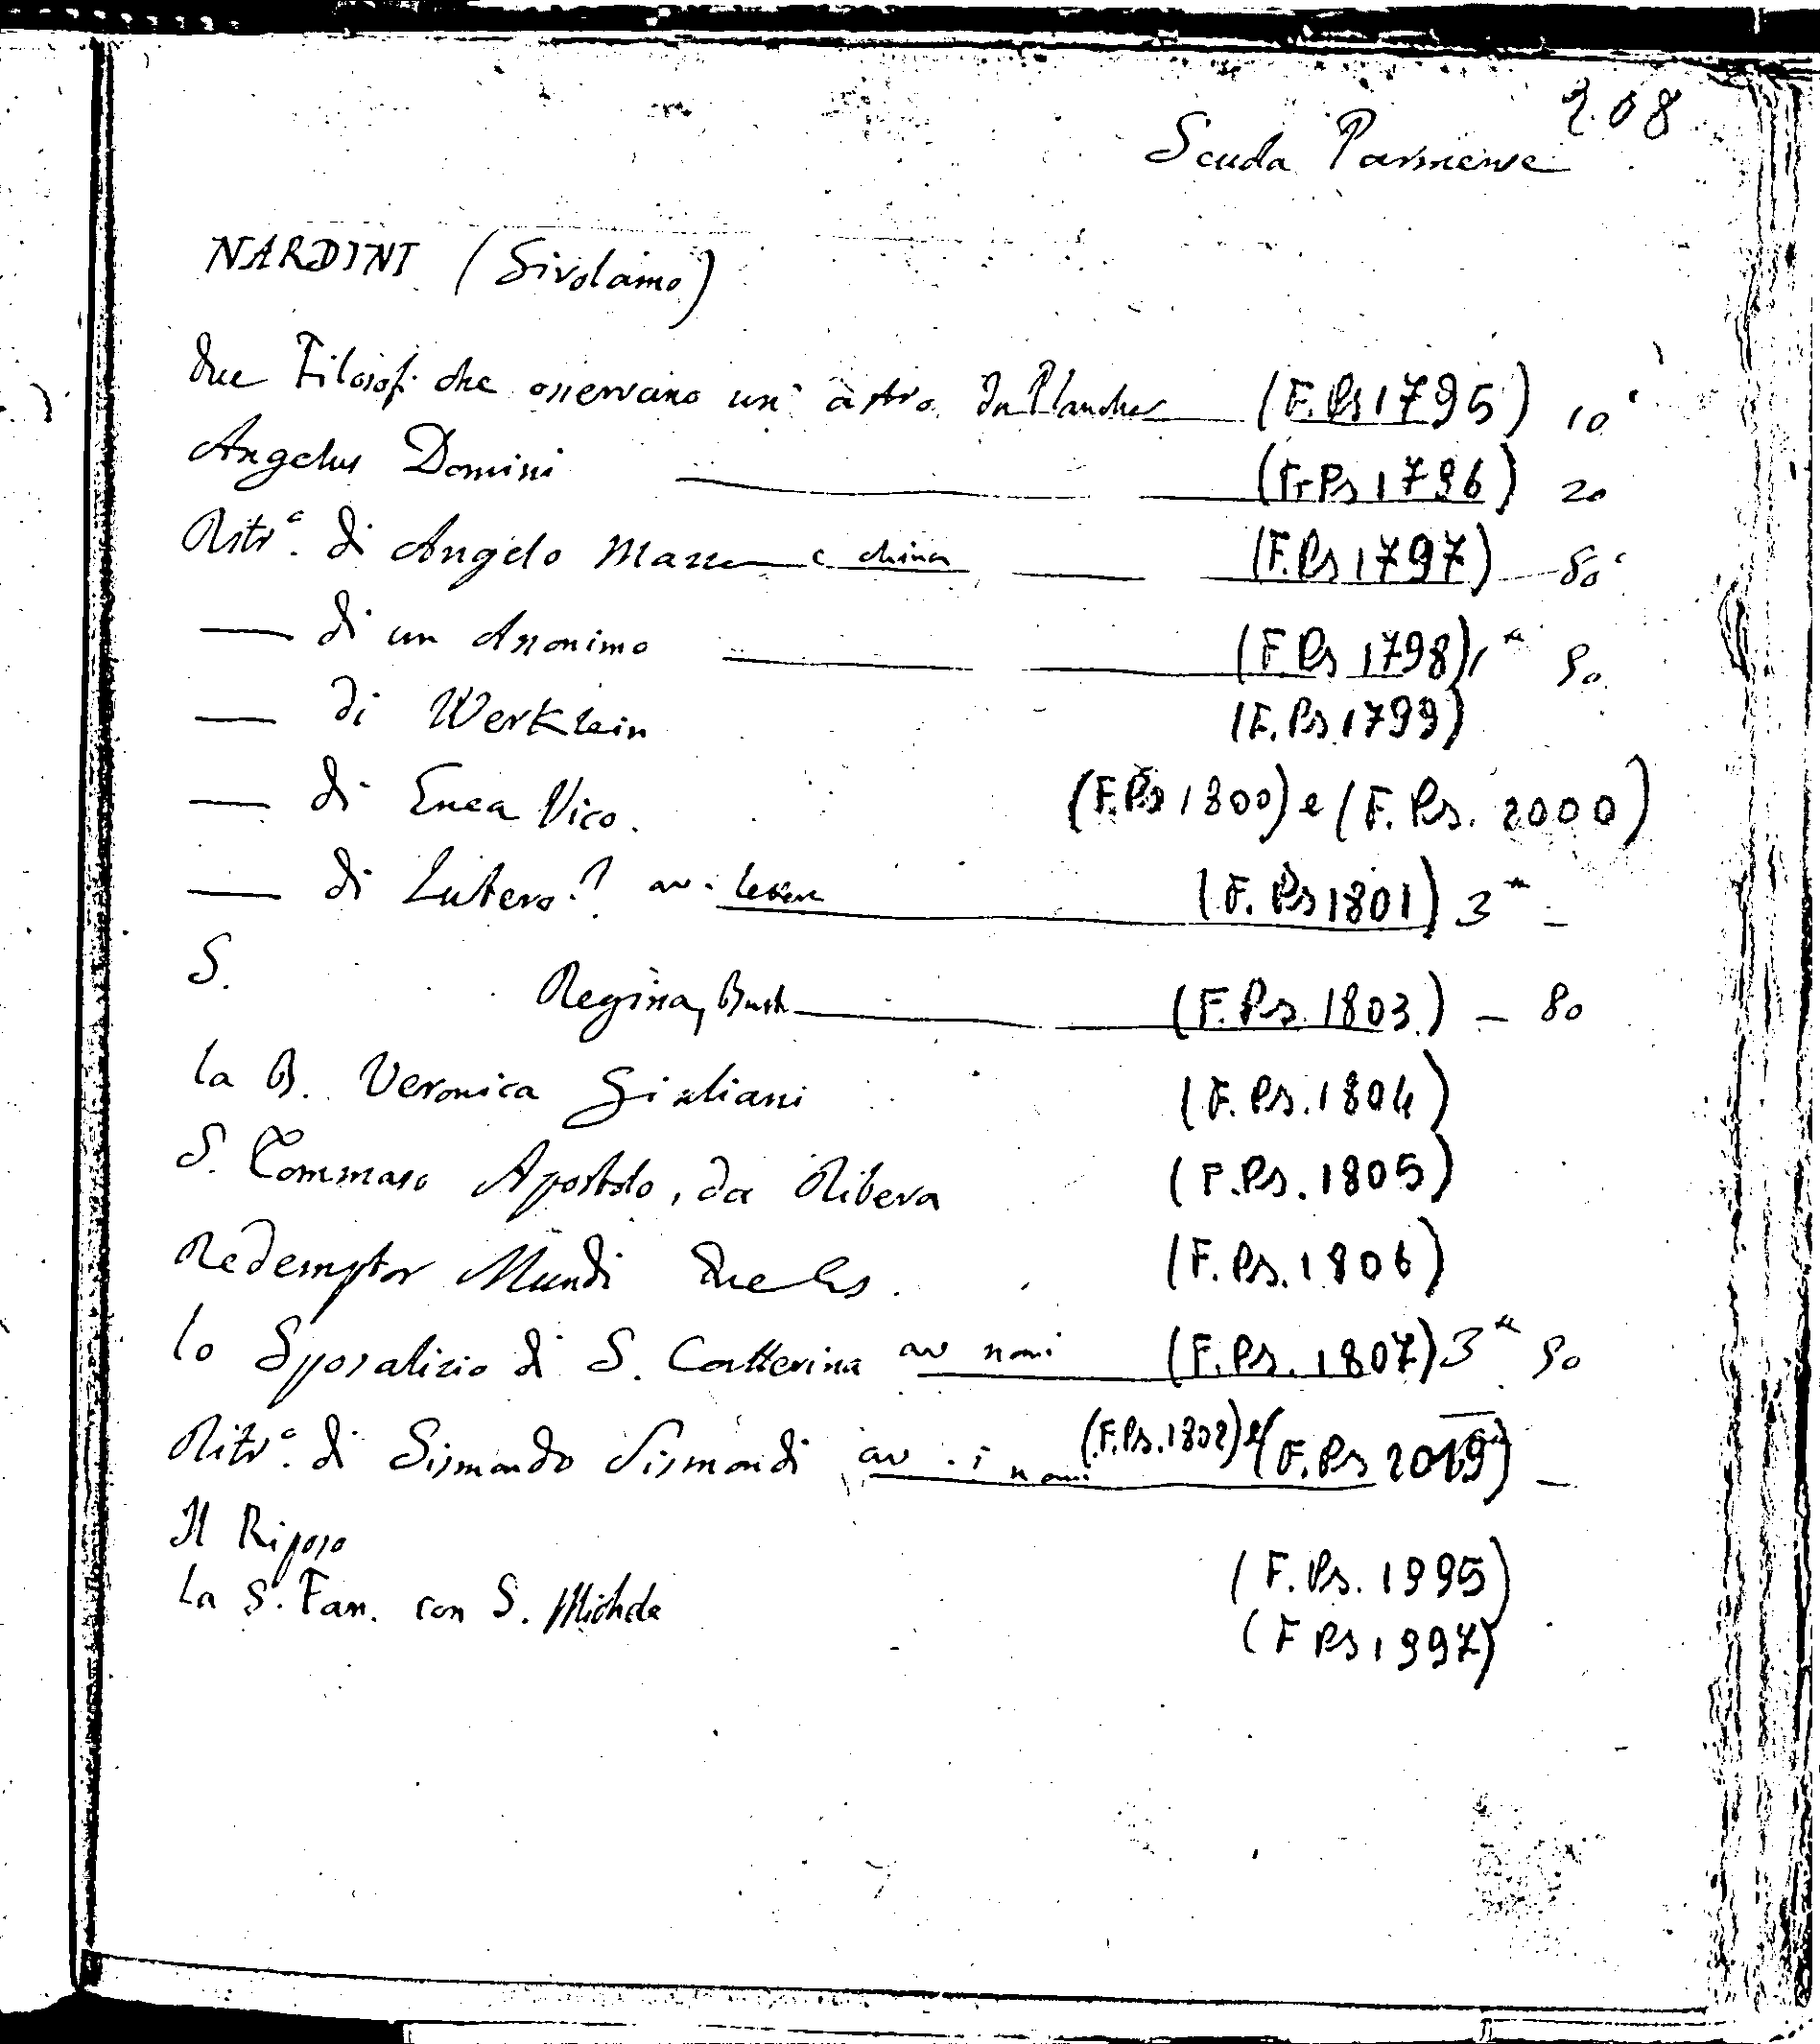 208
Scuola Parmense
NARDINI (Girolamo)
Due Filosofi che osservano un' astro. Du Plancher (F.Ps 1795) 10
Angelus Domini (F.Ps 1796) 20
Ritr.º di Angelo Mazza e china (F.Ps 1797) 80
— di un Anonimo (F Ps 1798) 1 50
— di Werklein (F.Ps 1799)
— di Enea Vico. (F.Ps 1800) e (F. Ps. 2000)
— di Lutero? av. lettere (F. Ps 1801) 3 —
S. Regina, Busto (F.Ps. 1803.) — 80
la B. Veronica Giuliani (F. Ps. 1804)
S. Tommaso Apostolo, da Ribera (F.Ps. 1805)
Redemptor Mundi due Es. (F. Ps. 1806)
lo Sposalizio di S. Catterina av nomi (F.Ps. 1807) 3 50
Ritr.º di Sismondo Sismondi av. i nomi (F.Ps. 1802) e (F.Ps 2019) —
Il Riposo (F. Ps. 1995)
La S. Fam. con S. Michele (F Ps 1997)